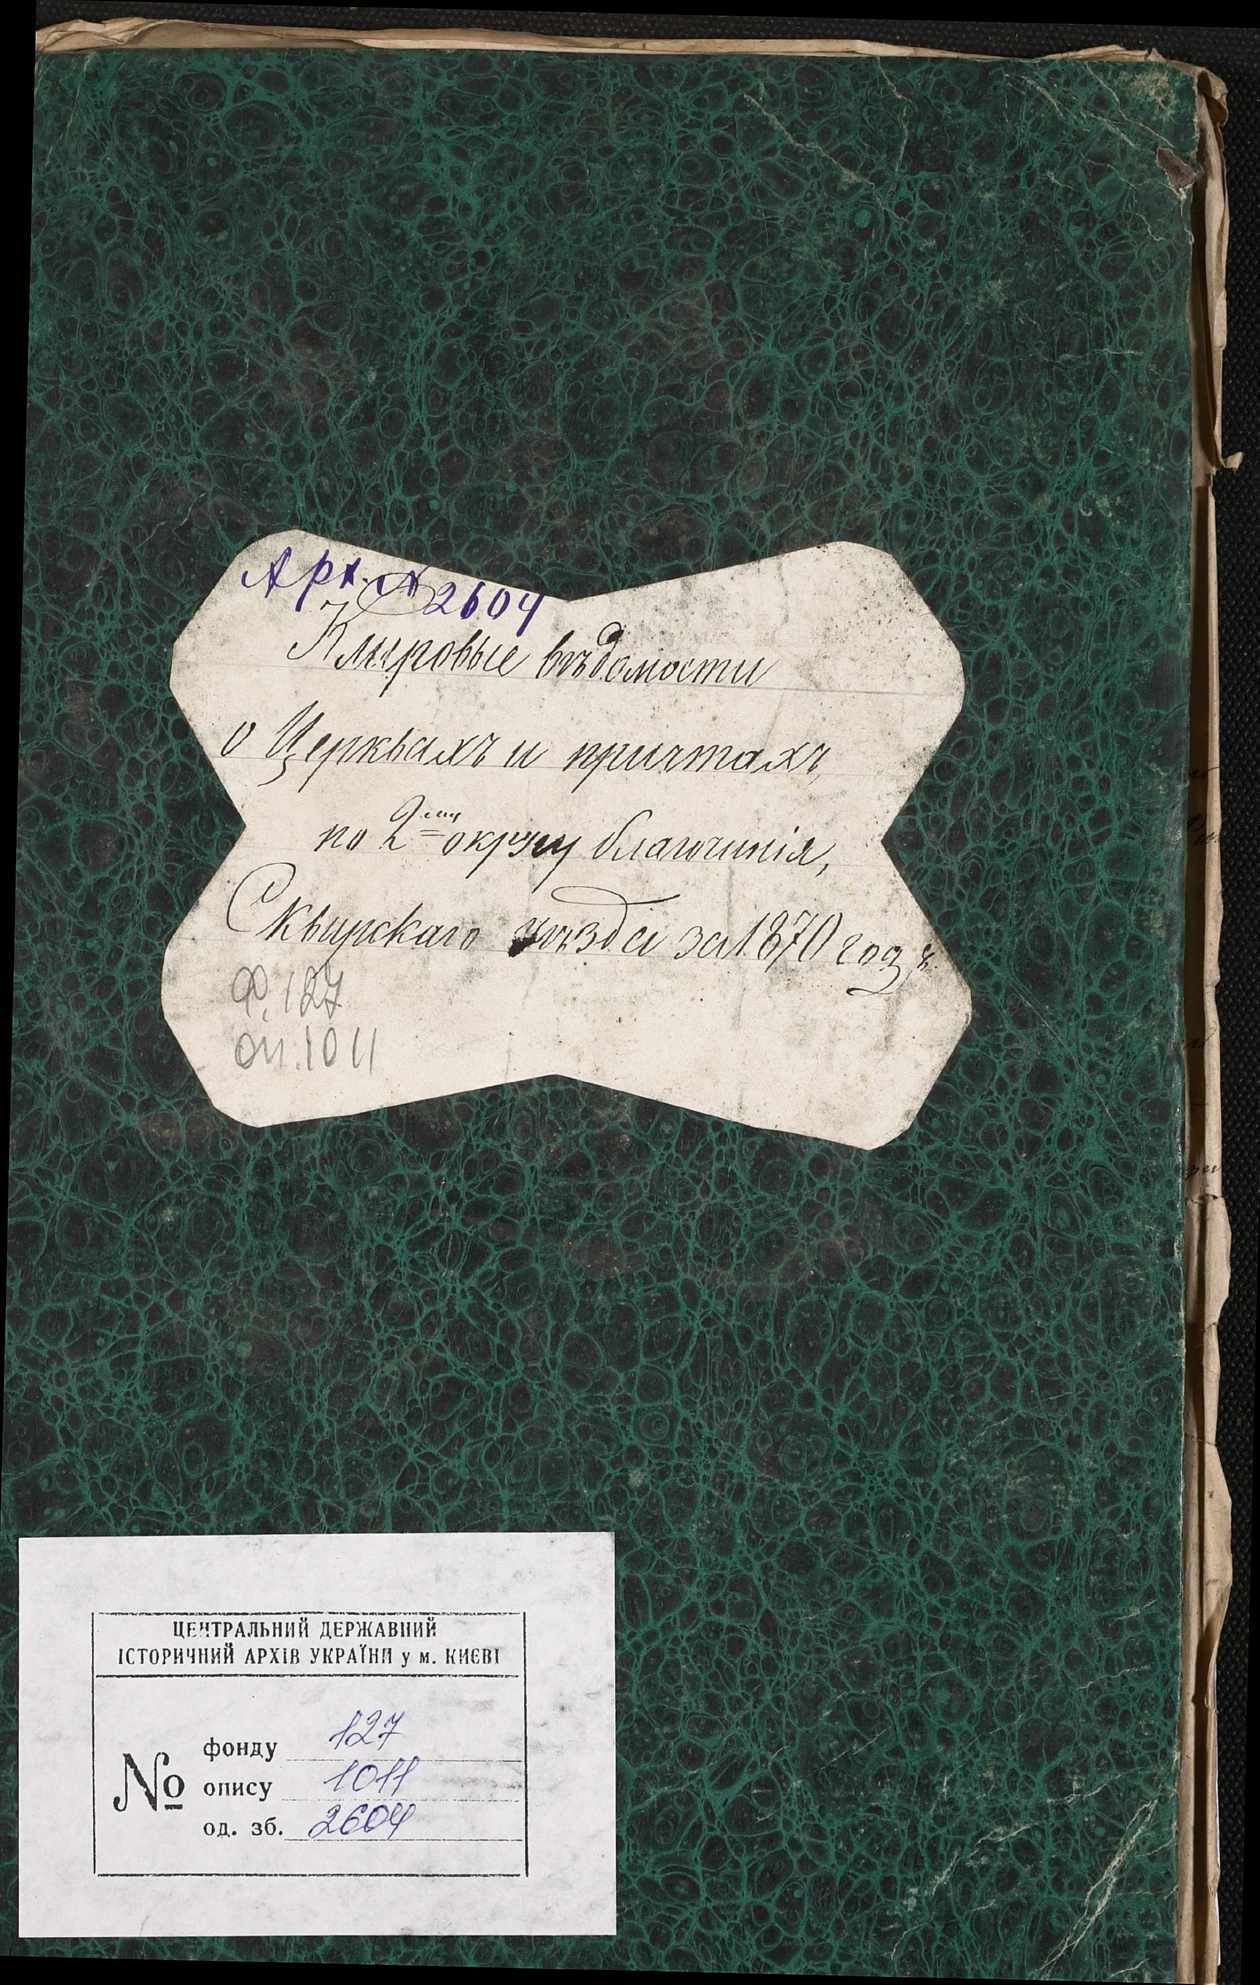 Арх. № 2604
Клировые вѣдомости
о Церквахъ и причтахъ,
по 2му округу благочинія,
Сквирскаго уѣзда за 1870 годъ.
Ф. 127
оп. 1011
ЦЕНТРАЛЬНИЙ ДЕРЖАВНИЙ
ІСТОРИЧНИЙ АРХІВ УКРАЇНИ у м. КИЄВІ
№
фонду 127
опису 1011
од. зб. 2604